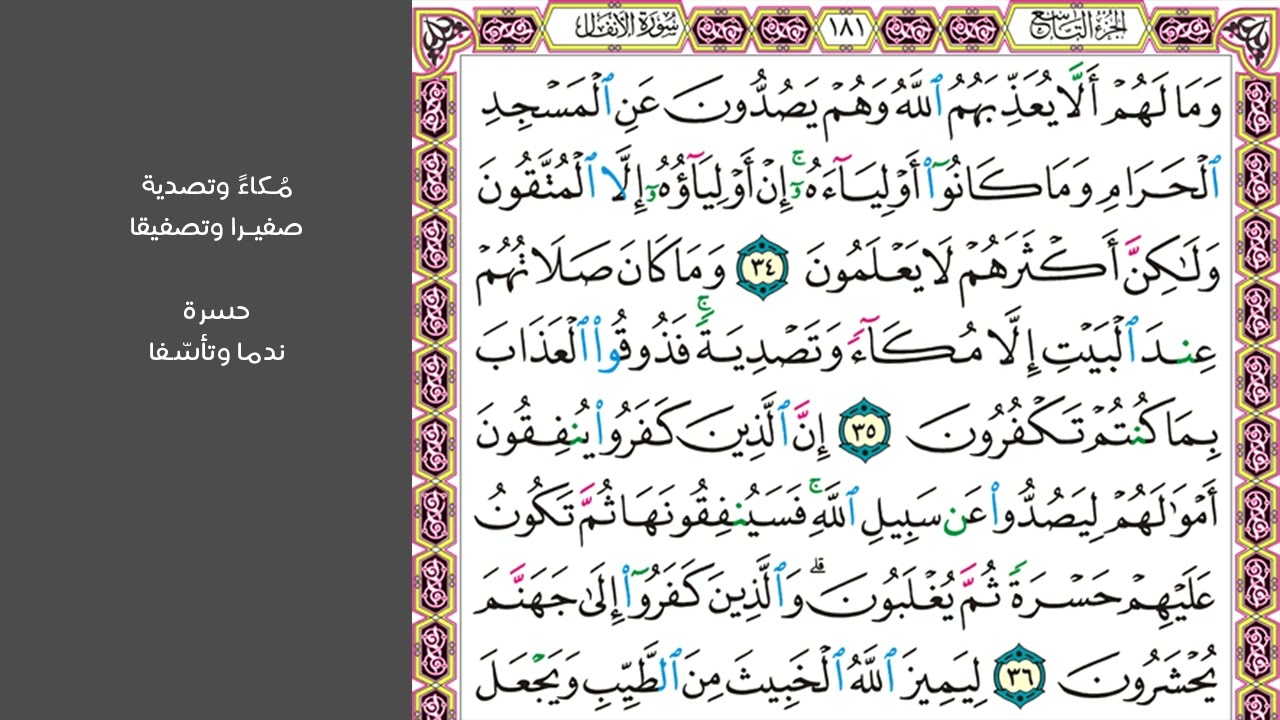 الجزء التاسع
١٨١
سورة الأنفال
وَمَا لَهُمْ أَلَّا يُعَذِّبَهُمُ ٱللَّهُ وَهُمْ يَصُدُّونَ عَنِ ٱلْمَسْجِدِ
ٱلْحَرَامِ وَمَا كَانُوٓا۟ أَوْلِيَآءَهُۥٓ ۚ إِنْ أَوْلِيَآؤُهُۥٓ إِلَّا ٱلْمُتَّقُونَ
وَلَٰكِنَّ أَكْثَرَهُمْ لَا يَعْلَمُونَ ٣٤ وَمَا كَانَ صَلَاتُهُمْ
عِندَ ٱلْبَيْتِ إِلَّا مُكَآءً وَتَصْدِيَةً ۚ فَذُوقُوا۟ ٱلْعَذَابَ
بِمَا كُنتُمْ تَكْفُرُونَ ٣٥ إِنَّ ٱلَّذِينَ كَفَرُوا۟ يُنفِقُونَ
أَمْوَٰلَهُمْ لِيَصُدُّوا۟ عَن سَبِيلِ ٱللَّهِ ۚ فَسَيُنفِقُونَهَا ثُمَّ تَكُونُ
عَلَيْهِمْ حَسْرَةً ثُمَّ يُغْلَبُونَ ۗ وَٱلَّذِينَ كَفَرُوٓا۟ إِلَىٰ جَهَنَّمَ
يُحْشَرُونَ ٣٦ لِيَمِيزَ ٱللَّهُ ٱلْخَبِيثَ مِنَ ٱلطَّيِّبِ وَيَجْعَلَ
مُكاءً وتصدية
صفيرا وتصفيقا
حسرة
ندما وتأسّفا